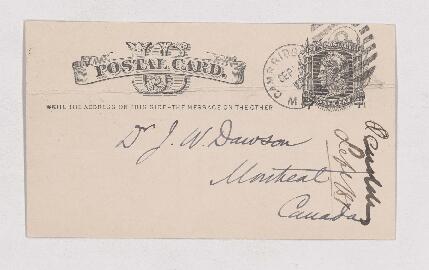 POSTAL CARD.
WRITE THE ADDRESS ON THIS SIDE-THE MESSAGE ON THE OTHER
CAMBRIDGE
SEP
Dr J. W. Dawson
Montreal
Canada
Sept 18